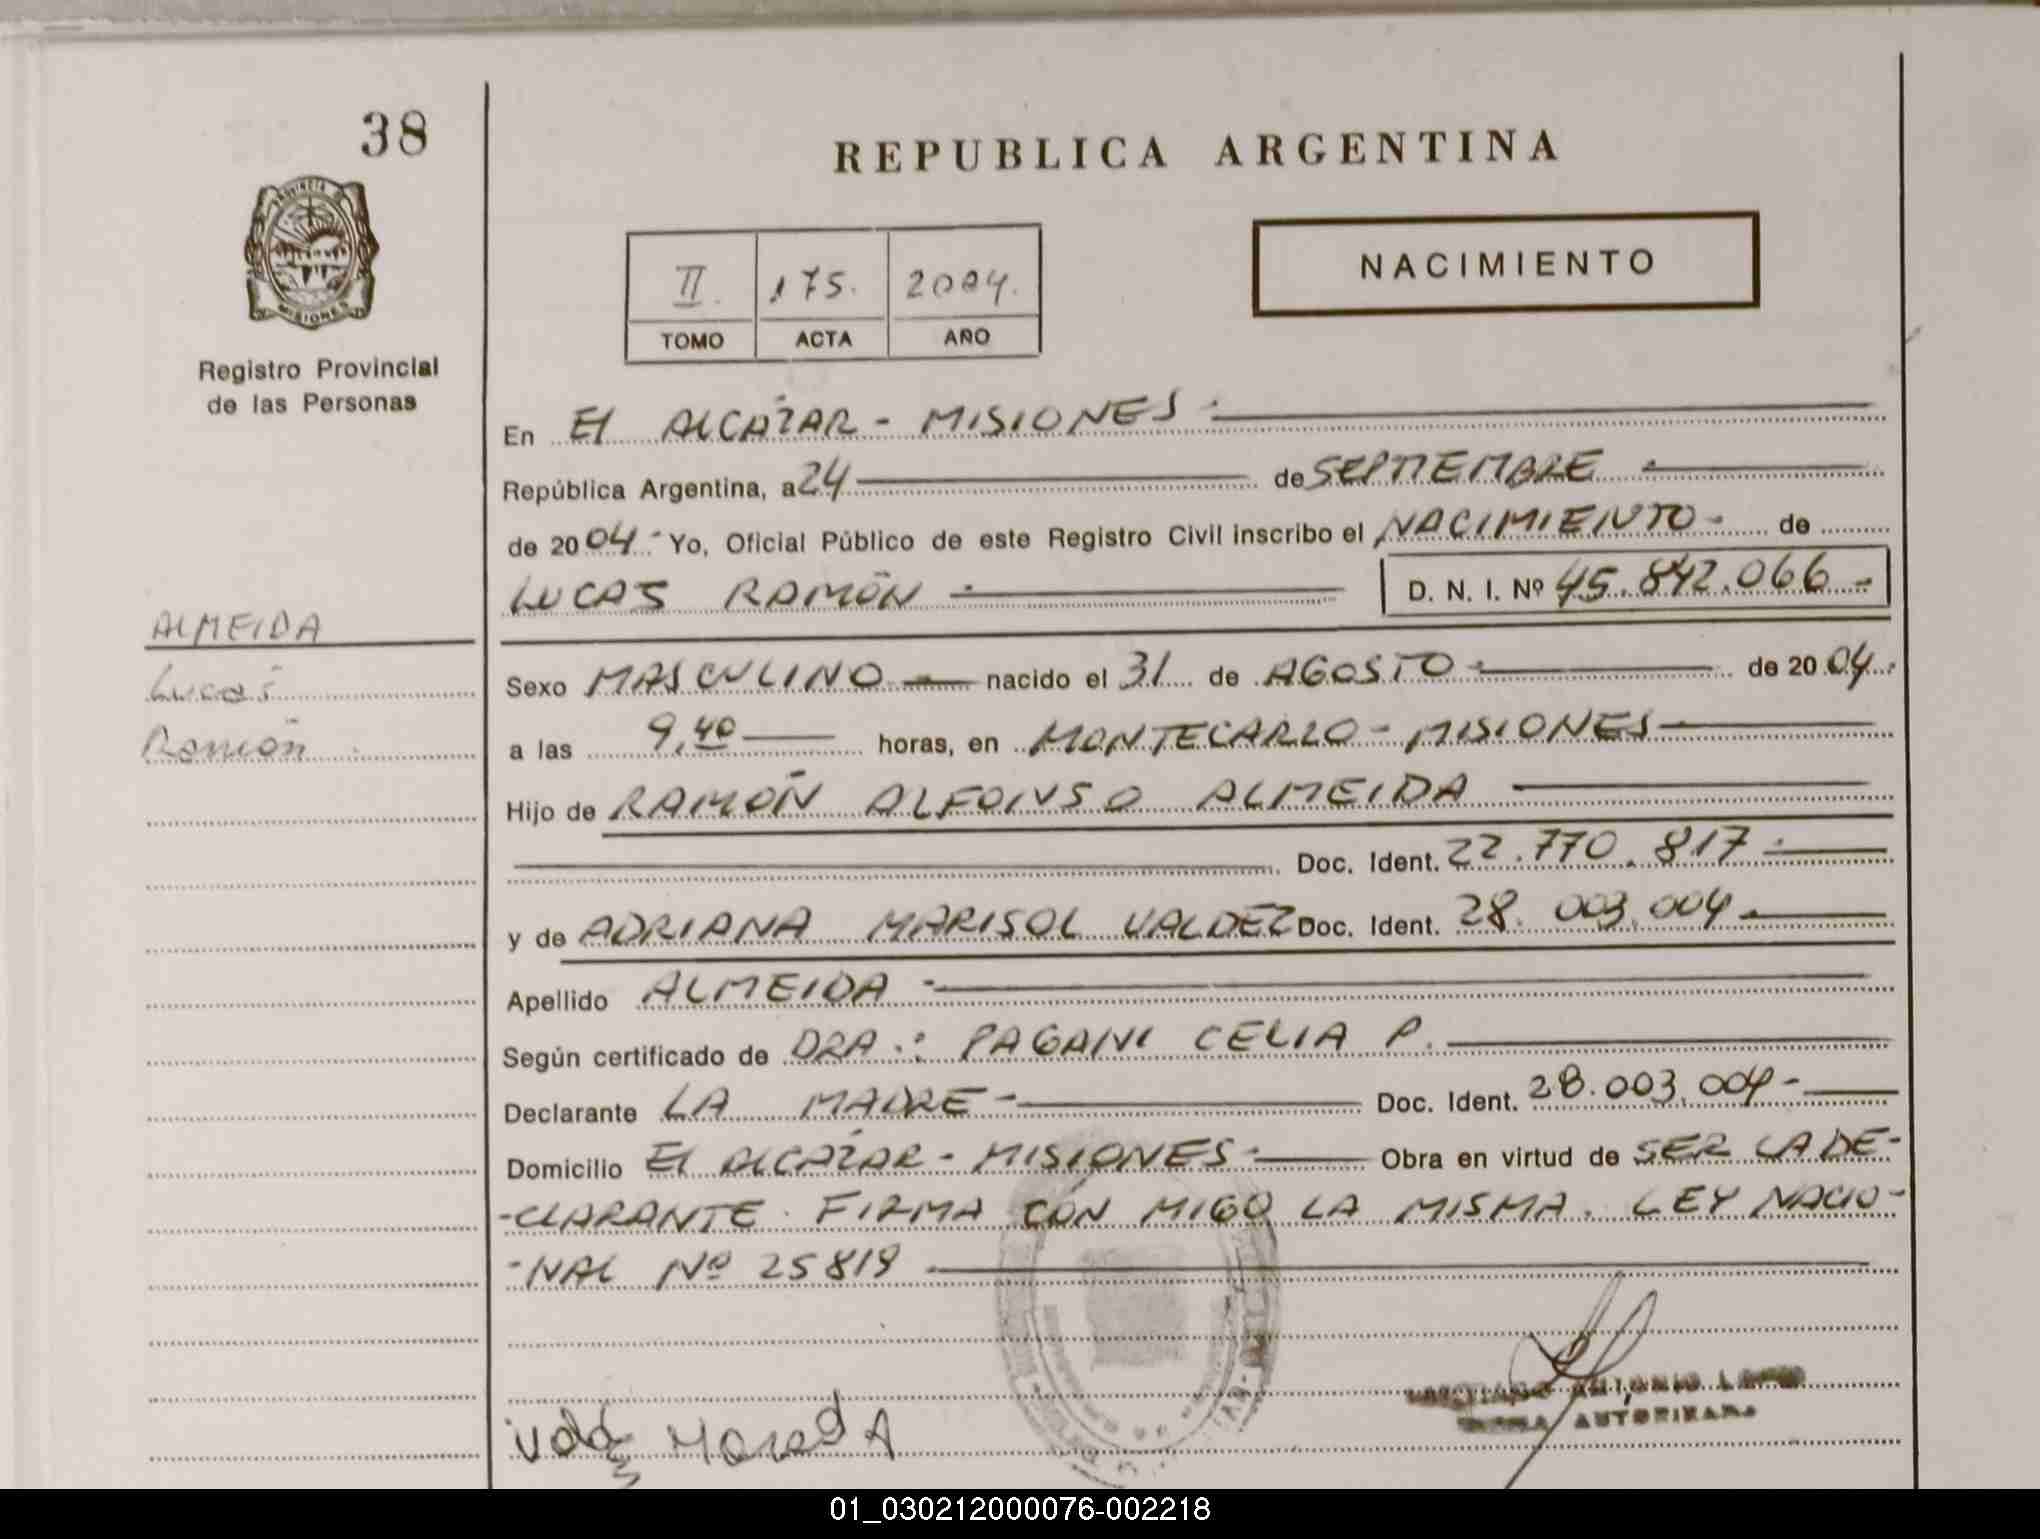 38
REPUBLICA ARGENTINA
PROVINCIA DE
MISIONES
NACIMIENTO
II. 175. 2004.
TOMO ACTA AÑO
Registro Provincial
de las Personas
En El ALCÁZAR - MISIONES.
República Argentina, a 24 de SEPTIEMBRE
de 2004.- Yo, Oficial Público de este Registro Civil inscribo el NACIMIENTO- de
LUCAS RAMÓN D. N. I. Nº 45.842.066.-
ALMEIDA
Lucas
Ramón
Sexo MASCULINO nacido el 31 de AGOSTO de 2004.
a las 9,40 horas, en MONTECARLO - MISIONES
Hijo de RAMÓN ALFONSO ALMEIDA
Doc. Ident. 22.770.817.
y de ADRIANA MARISOL VALDEZ Doc. Ident. 28.003.004.
Apellido ALMEIDA
Según certificado de DRA.: PAGANI CELIA P.
Declarante LA MADRE- Doc. Ident. 28.003.004-
Domicilio El ALCÁZAR - MISIONES. Obra en virtud de SER LA DE-
-CLARANTE. FIRMA CON MIGO LA MISMA. LEY NACIO-
-NAL Nº 25819
ANTONIO
AUTORIZADA
01_030212000076-002218